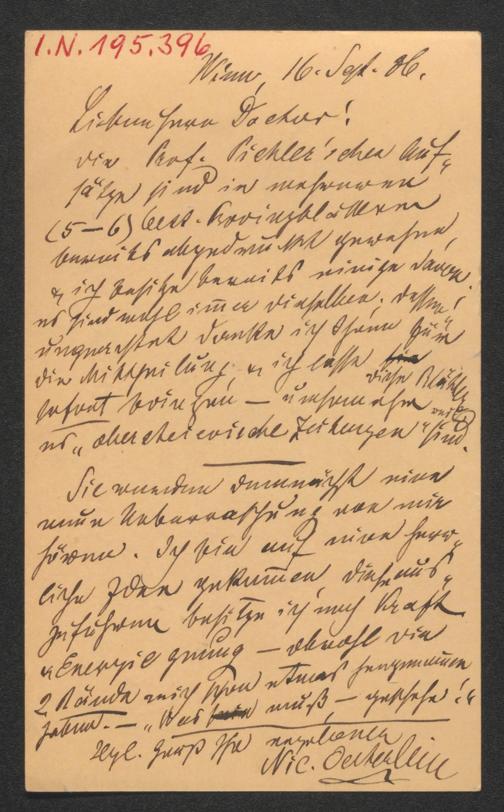 I.N. 195.396
Wien, 16. Sept. 86.
Lieber Herr Doctor!
die Prof. Pichler'schen Auf-
sätze sind in mehreren
(5–6) oest. Provinzblättern
bereits abgedruckt gewesen,
& ich besitze bereits einige davon.
es sind wohl immer dieselben. dessen
ungeachtet danke ich Ihnen für
die Mittheilung & ich lasse
diese Blätter
sofort bringen – umsomehr weil
es "obersteierische Zeitungen" sind.
Sie werden demnächst eine
neue Ueberraschung von mir
hören. Ich bin auf eine herr-
liche Idee gekommen diese aus-
zuführen besitze ich noch Kraft
& Energie genug – obwohl die
2 Bände mich schon etwas hergenommen
haben. – "Was muß – geschehe!"
Hzl. Gruß Ihr ergebener
Nic. Oesterlein